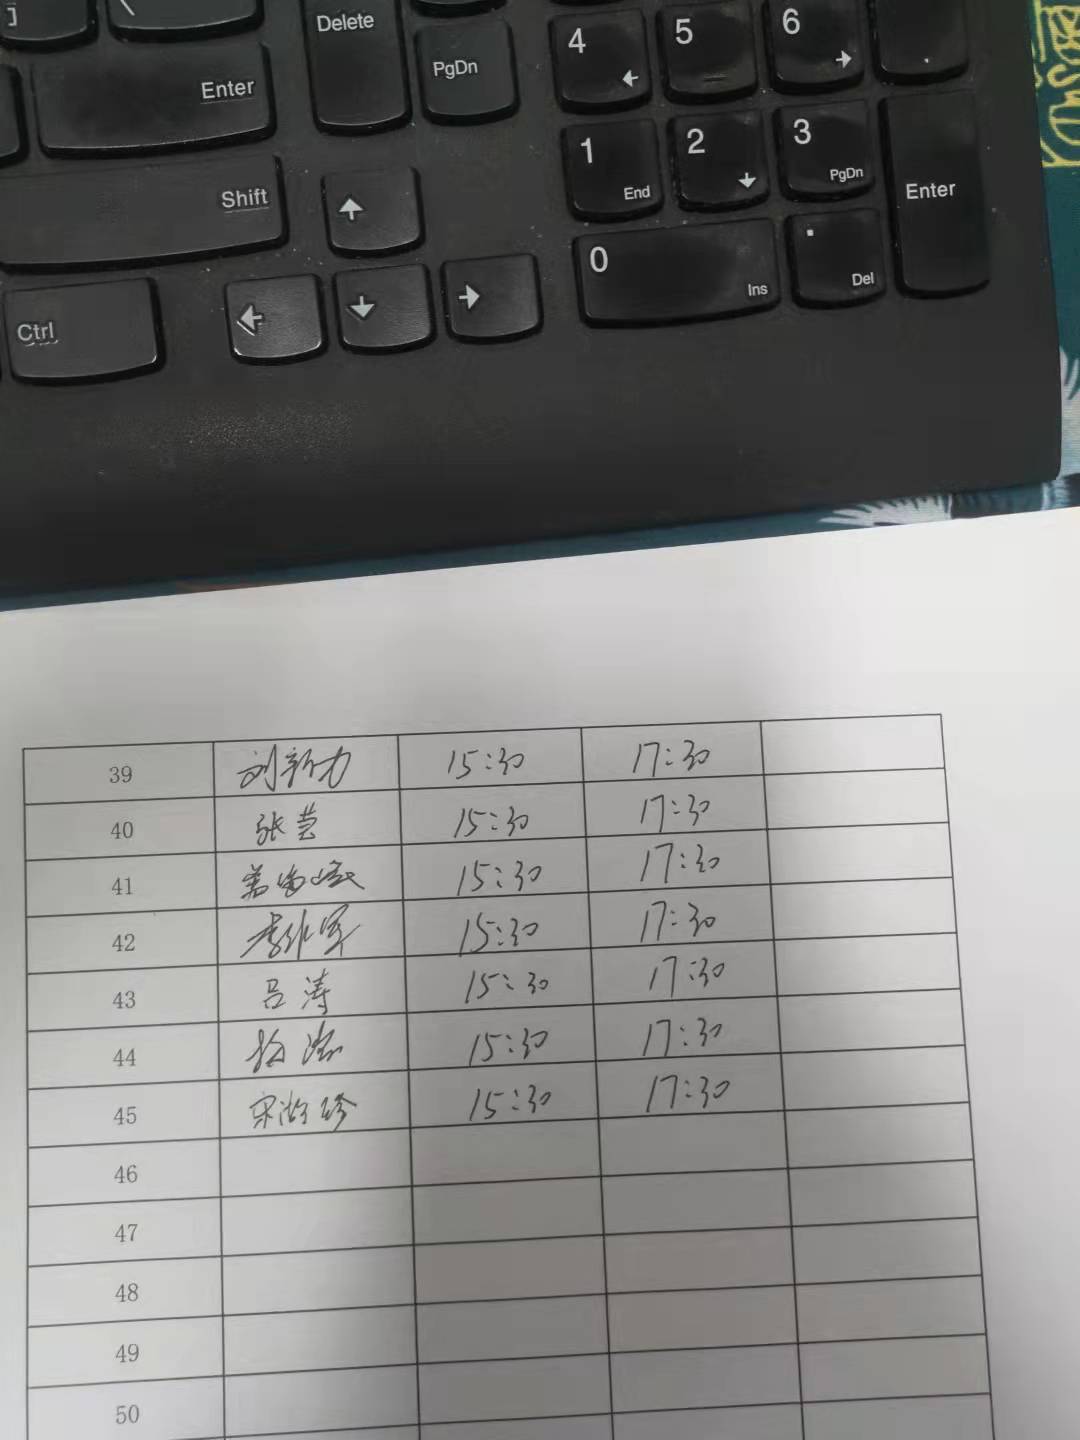 ]
\
Delete
4
5
6
Enter
PgDn
1
End
2
3
PgDn
Enter
Shift
0
Ins
.
Del
Ctrl
39 刘新力 15:30 17:30
40 张芸 15:30 17:30
41 15:30 17:30
42 15:30 17:30
43 吕涛 15:30 17:30
44 15:30 17:30
45 15:30 17:30
46
47
48
49
50